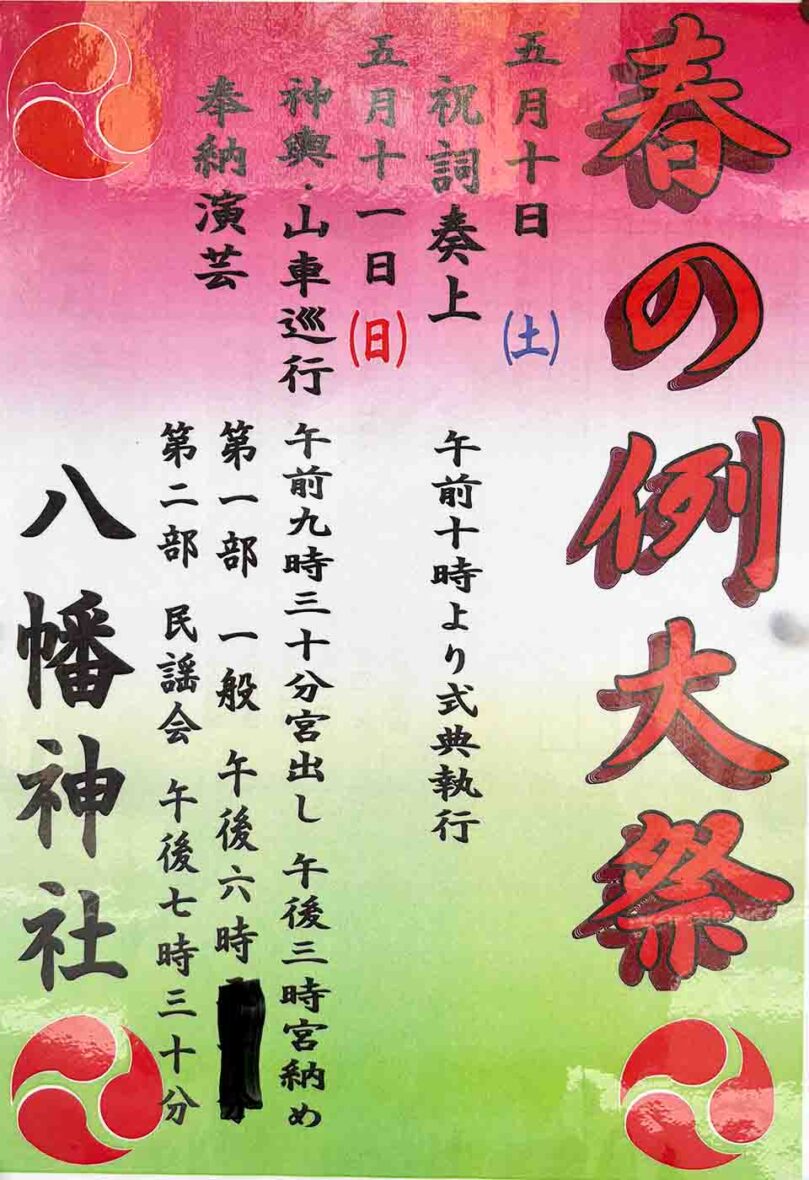 春の例大祭
五月十日(土)
祝詞奏上 午前十時より式典執行
五月十一日(日)
神輿・山車巡行 午前九時三十分宮出し 午後三時宮納め
奉納演芸 第一部 一般 午後六時
第二部 民謡会 午後七時三十分
八幡神社